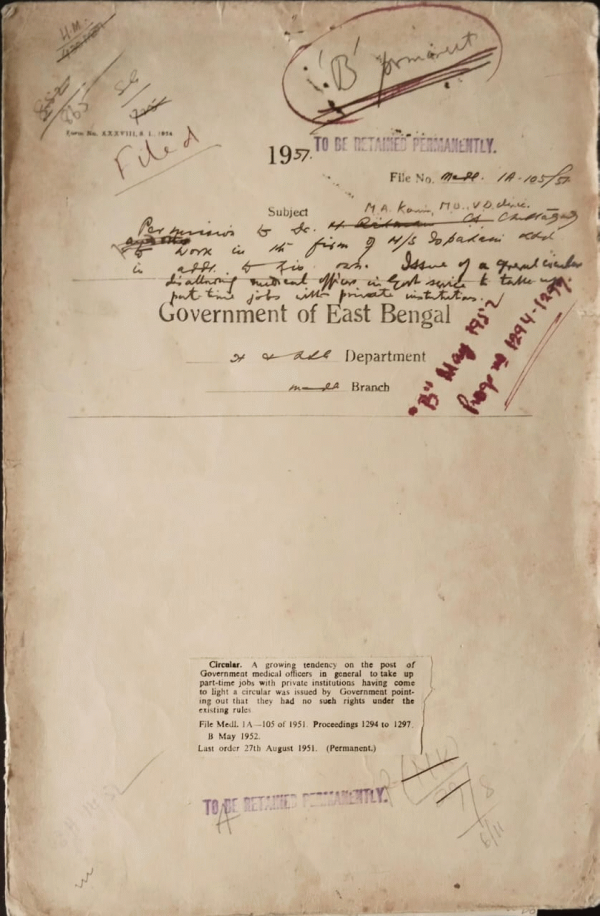 'B' permanent
86
Form No. XXXVIII, S. I., 1934
Filed
1951.
TO BE RETAINED PERMANENTLY.
File No. Medl. 1A-105/51
Subject
M.A. Karim, M.O., V.D. Clinic.
Permission to Dr. Chittagong
to work in the firm of M/S Ispahani Ltd
in addn. to his own. Issue of a general circular
disallowing medical officers in Govt service to take up
part time jobs with private institution.
Government of East Bengal
Department
Medl Branch
"B" May 1952
Progs. 1294-1297.
Circular. A growing tendency on the post of
Government medical officers in general to take up
part-time jobs with private institutions having come
to light a circular was issued by Government point-
ing out that they had no such rights under the
existing rules.
File Medl. 1A—105 of 1951. Proceedings 1294 to 1297.
B May 1952.
Last order 27th August 1951. (Permanent.)
TO BE RETAINED PERMANENTLY.
6/11